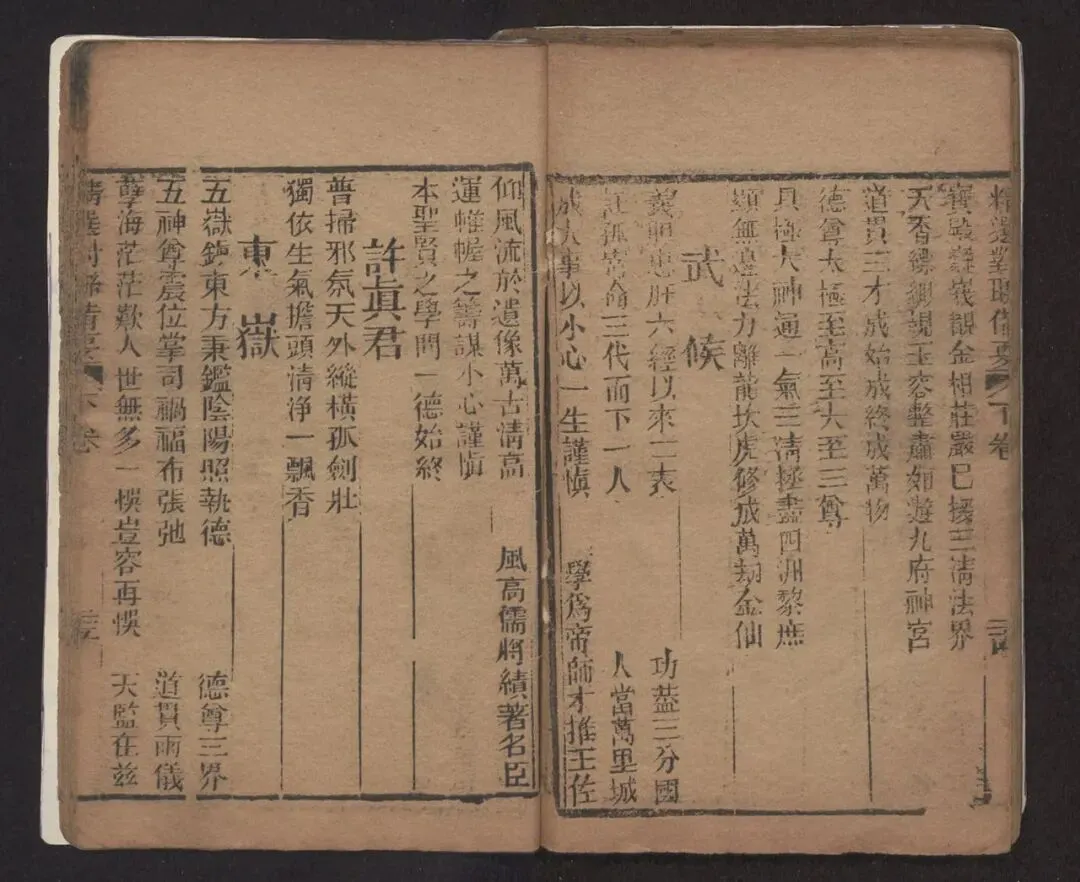 精選對聯備要 下卷
寶殿巍峩覩金相莊嚴已接三淸法界
天香縹緲覩玉容整肅如遊九府神宮
道貫三才成始成終成萬物
德尊太極至高至大至三尊
具極大神通一氣三淸拯盡四洲黎庶
顯無邊法力離龍坎虎修成萬劫金仙
武侯
義胆忠肝六經以來二表 功蓋三分國
託孤寄命三代而下一人 人當萬里城
成大事以小心一生謹愼 學爲帝師才推王佐
仰風流於遺像萬古淸高 風高儒將績著名臣
運帷幄之籌謀小心謹愼
本聖賢之學問一德始終
許眞君
普掃邪氛天外縱橫孤劍壯
獨依生氣擔頭淸淨一瓢香
東嶽
五嶽鎮東方秉鑑陰陽照執德 德尊三界
五神尊震位掌司禍福布張弛 道貫兩儀
孽海茫茫歎人世無多一悞豈容再悞 天監在兹
精選對聯備要 下卷